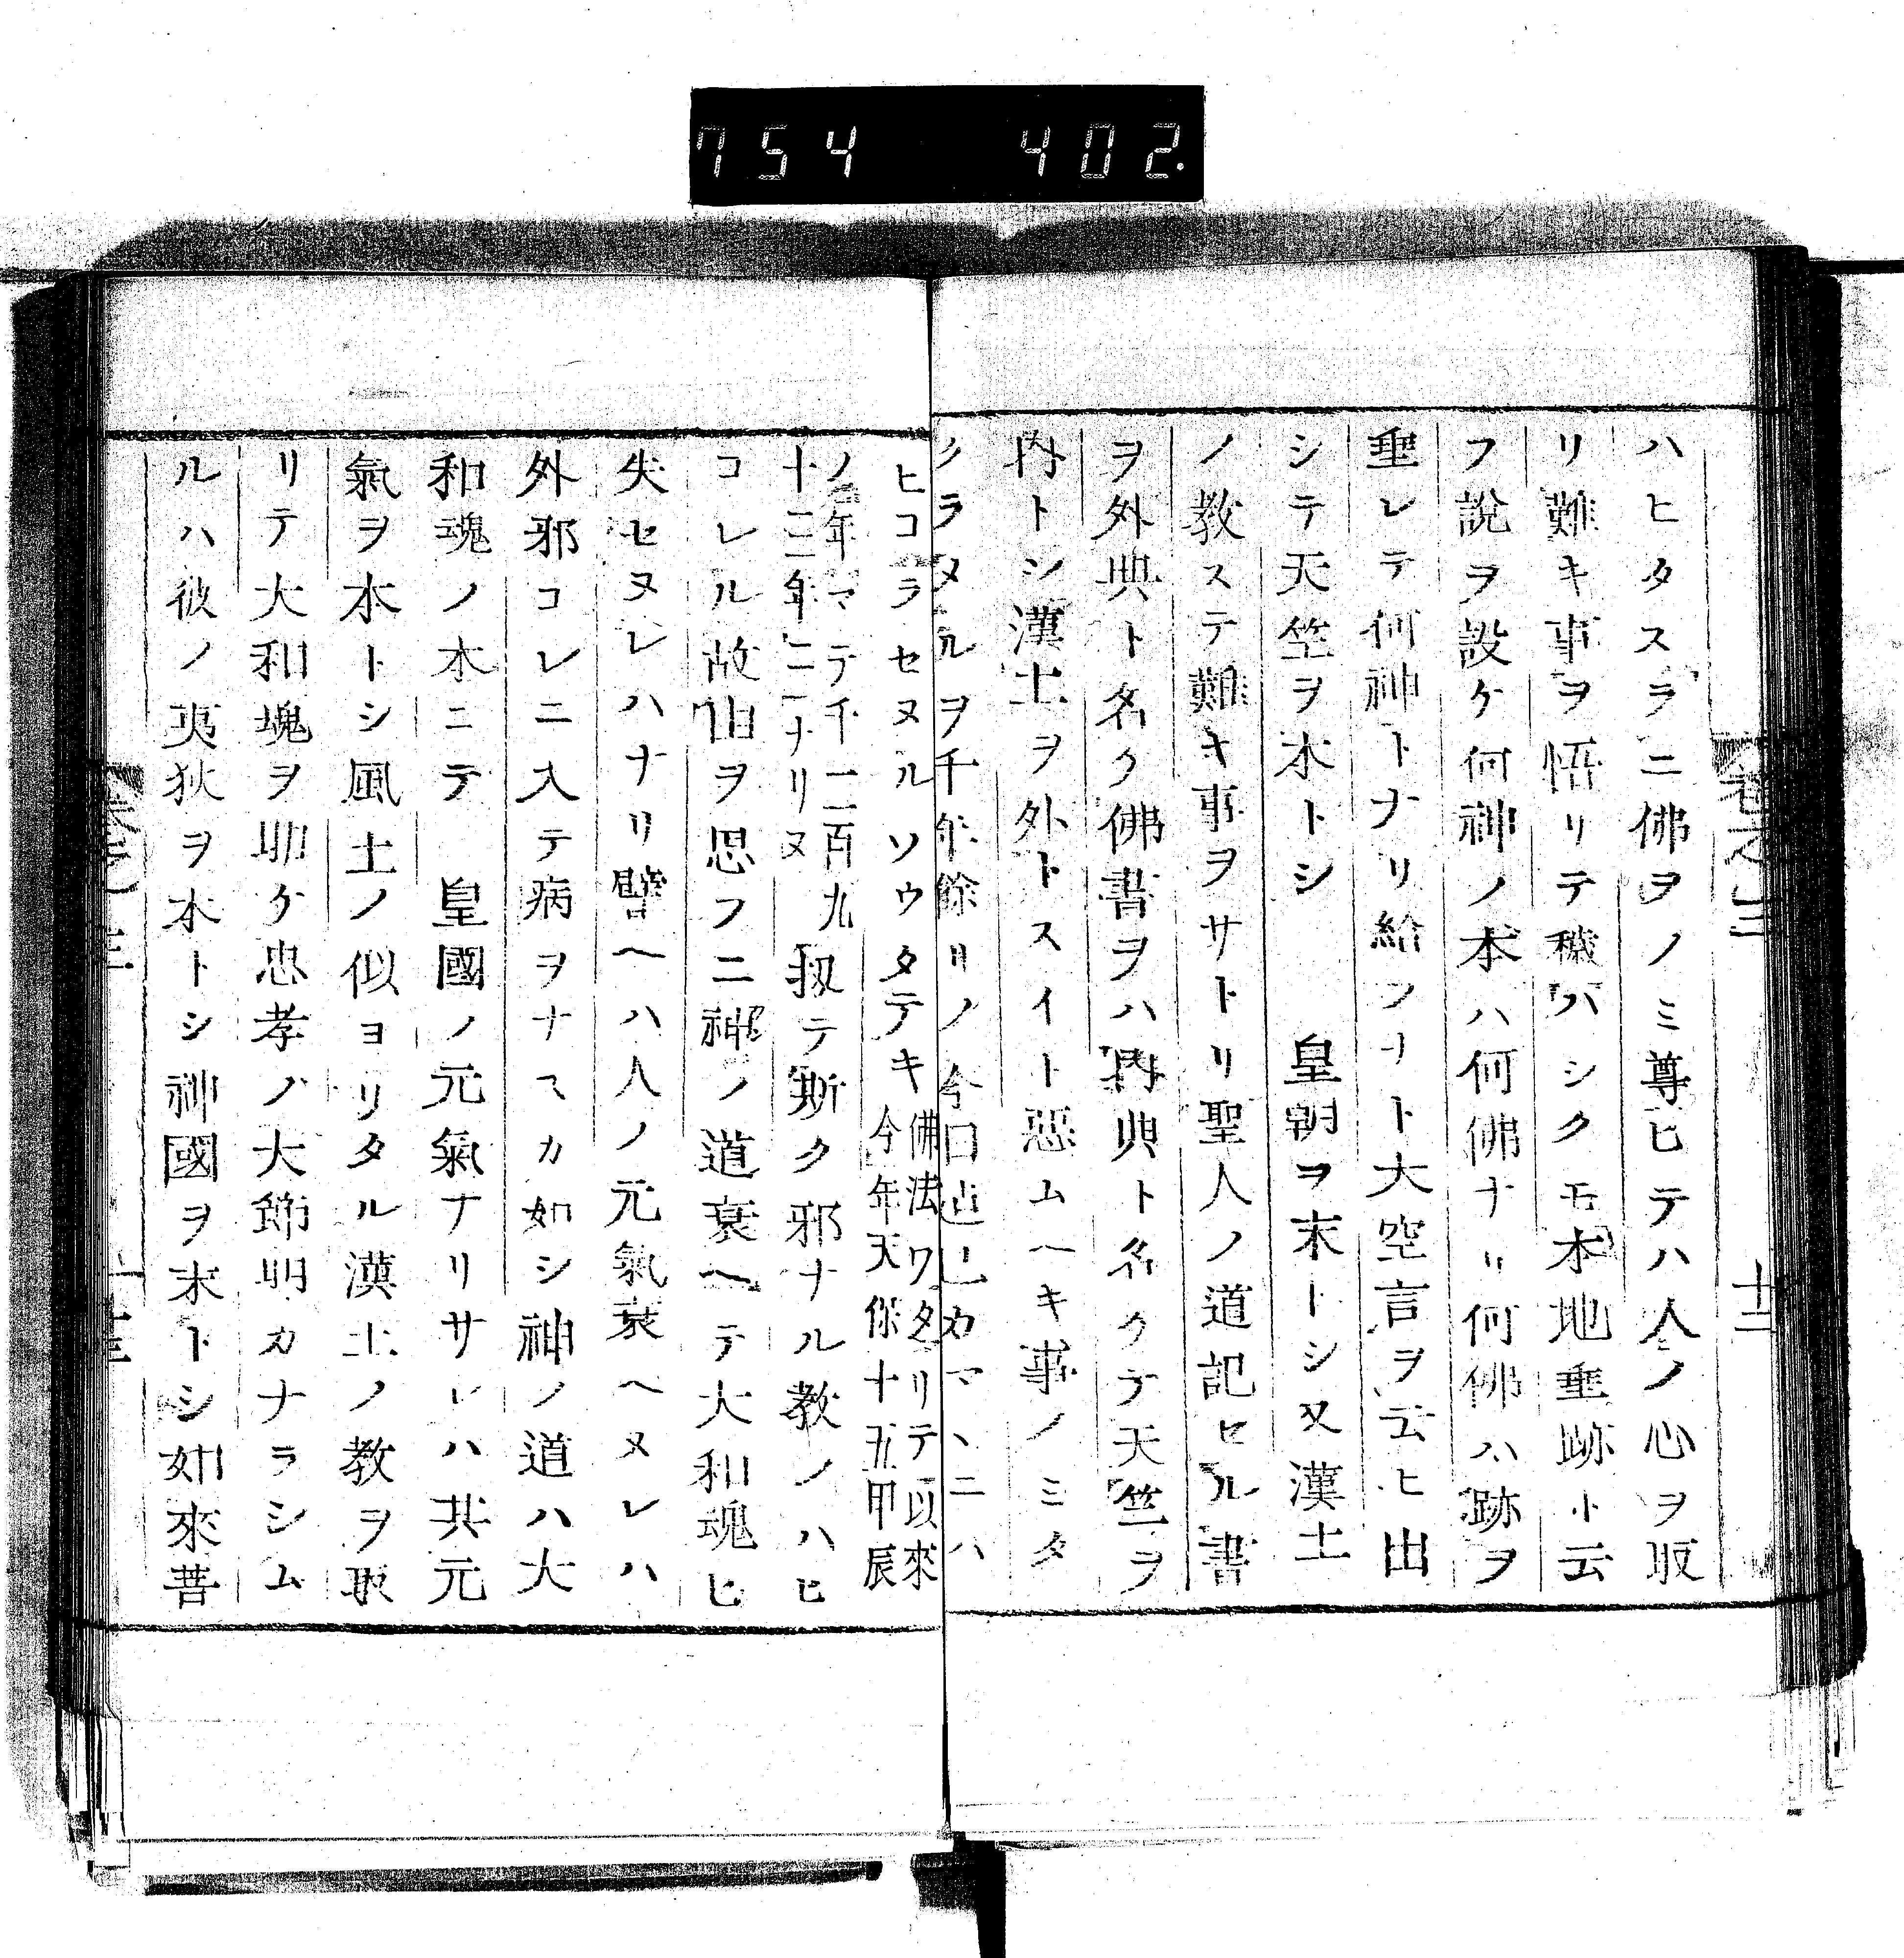 754 402.
卷之三
十二
ハヒタスラニ佛ヲノミ尊ヒテハ人ノ心ヲ取
リ難キ事ヲ悟リテ穢ハシクモ本地垂跡ト云
フ說ヲ設ケ何神ノ本ハ何佛ナリ何佛ハ跡ヲ
垂レテ何神トナリ給フナト大空言ヲ云ヒ出
シテ天竺ヲ本トシ　皇朝ヲ末トシ又漢土
ノ教ステ難キ事ヲサトリ聖人ノ道記セル書
ヲ外典ト名ク佛書ヲハ內典ト名クテ天竺ヲ
內トシ漢土ヲ外トスイト惡ムヘキ事ノミタ
クラメルヲ千年餘リノ今日迠シカマヽニハ
ヒコラセヌルソウタテキ佛法ワタリテ以來
今年天保十五甲辰
ノ年マテ千二百九
十三年ニナリヌ
扨テ斯ク邪ナル教ノハヒ
コレル故由ヲ思フニ神ノ道衰ヘテ大和魂ヒ
失セヌレハナリ譬ヘハ人ノ元氣衰ヘヌレハ
外邪コレニ入テ病ヲナスカ如シ神ノ道ハ大
和魂ノ本ニテ　皇國ノ元氣ナリサレハ共元
氣ヲ本トシ風土ノ似ヨリタル漢土ノ教ヲ取
リテ大和塊ヲ助ケ忠孝ノ大節明カナラシム
ルハ彼ノ夷狄ヲ本トシ神國ヲ末トシ如來菩